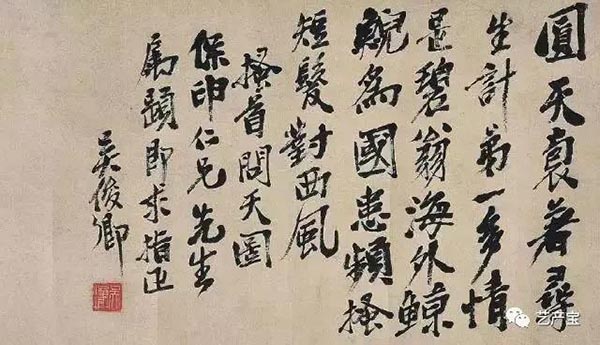 圓天裏著尋
生計第一多情
是碧翁海外鯨
鯢為國患頻搔
短髮對西風
搔首問天圖
保仁兄先生
屬題即求指正
吳俊卿
艺产宝